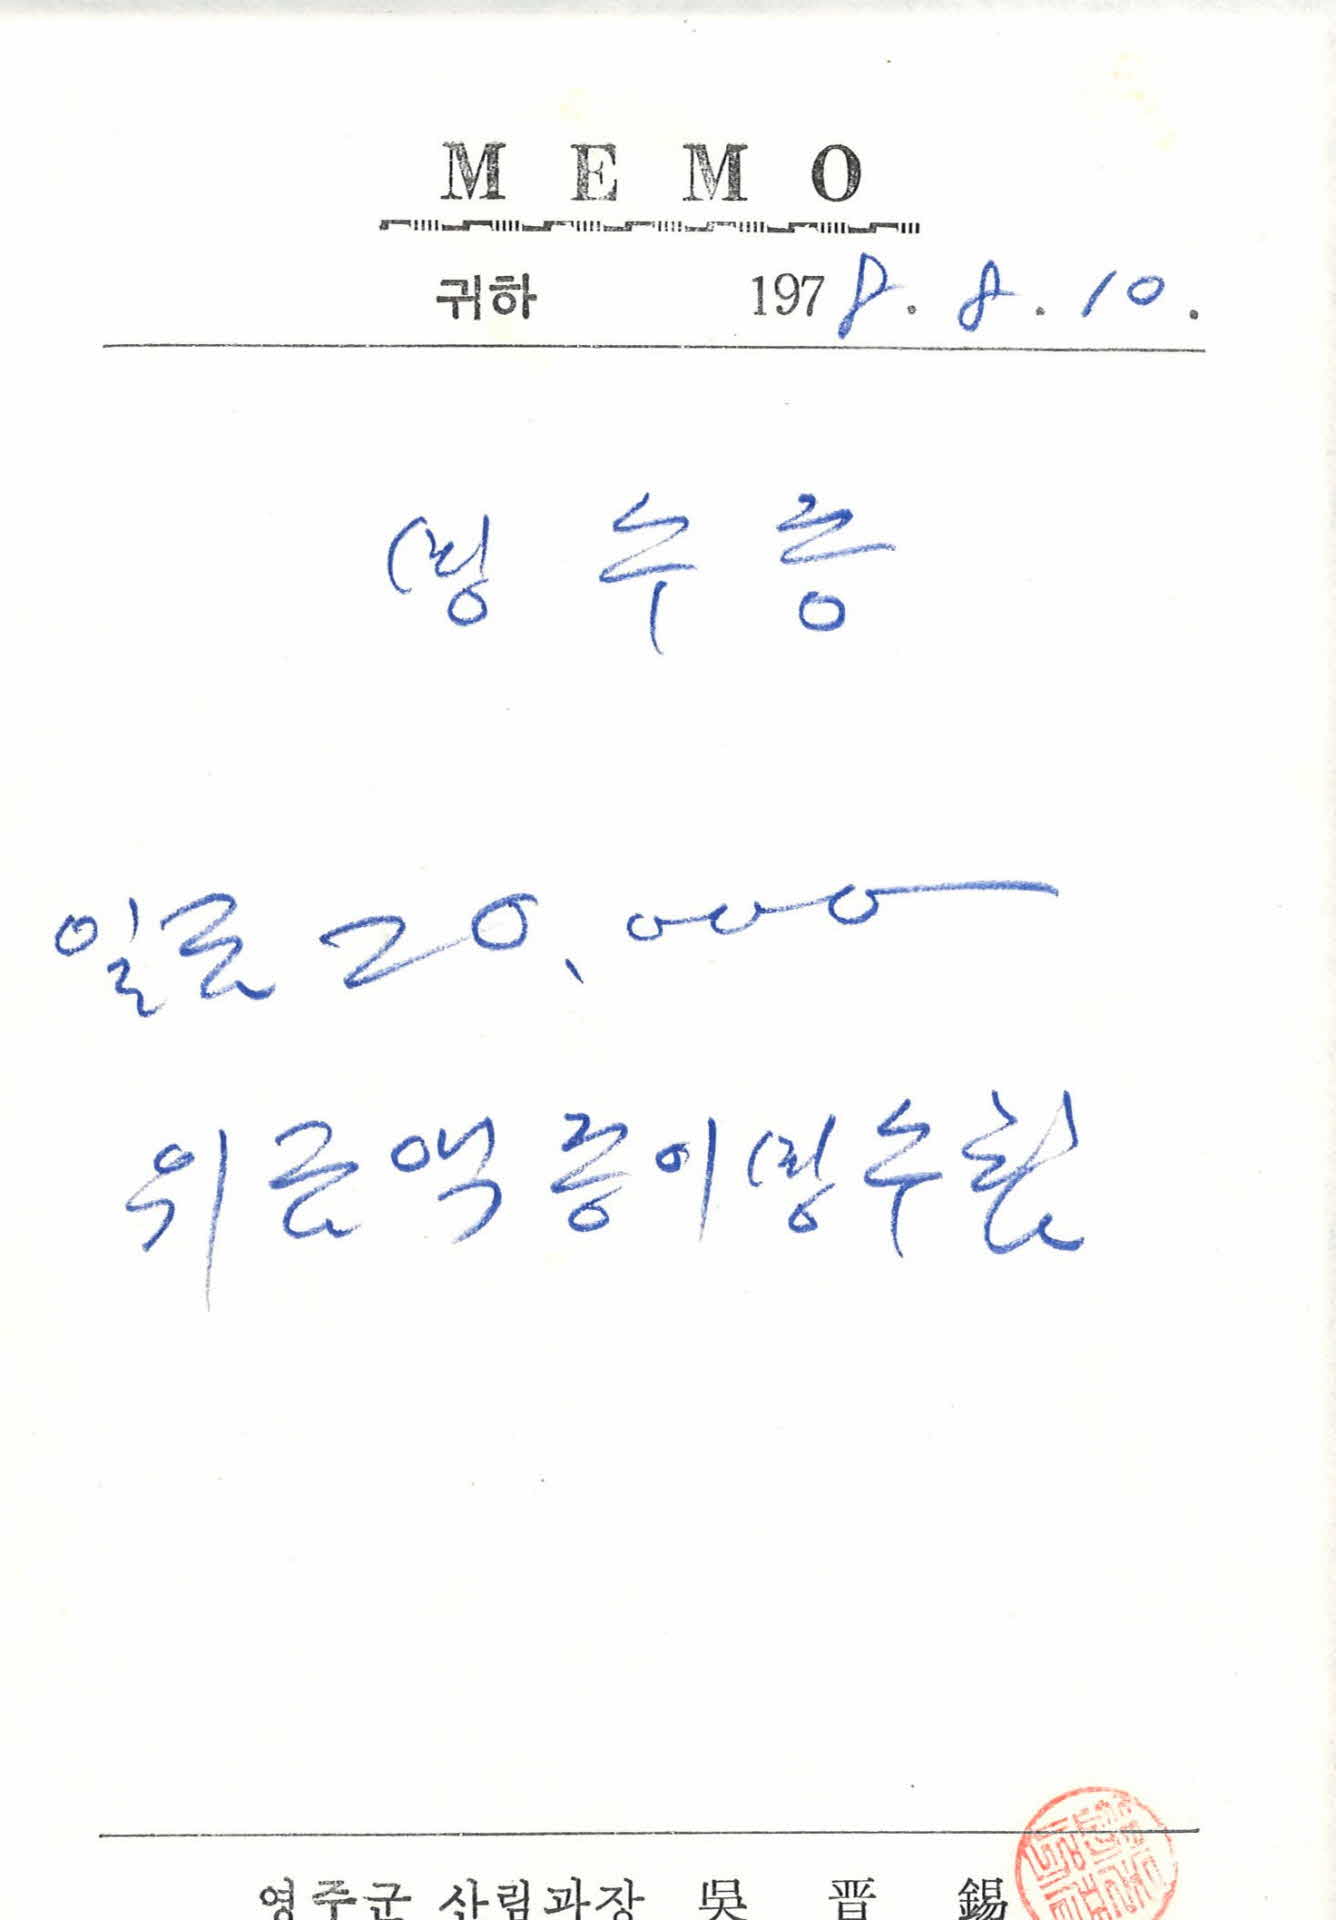 MEMO
귀하 1978. 8. 10.
영수증
일금 20,000
위 금액 증이 영수함
영주군 산림과장 吳晋錫